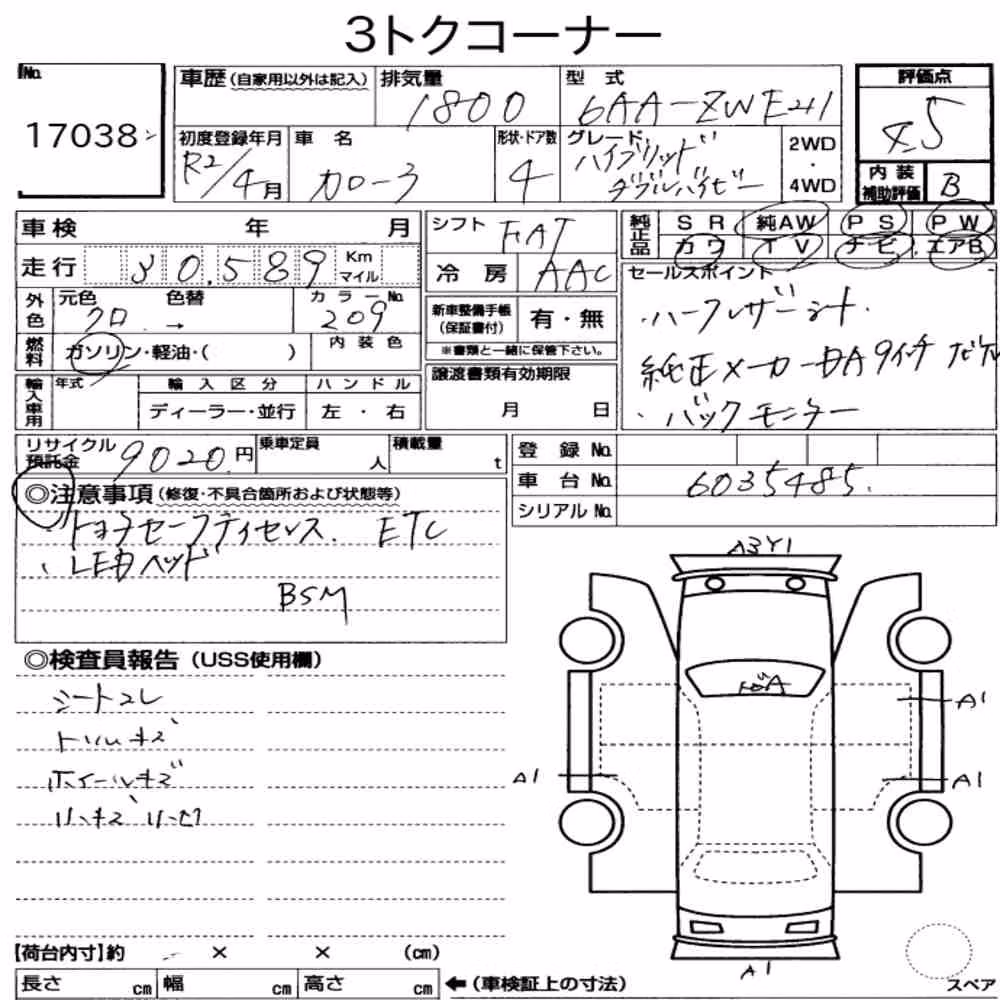 3トクコーナー
No.
17038
車歴(自家用以外は記入)
排気量
1800
型 式
6AA-ZWE211
評価点
4.5
初度登録年月
R2/4月
車 名
カローラ
形状・ドア数
4
グレード
ハイブリッド
ダブルバイビー
2WD
・
4WD
内 装
補助評価
B
車検 年 月
シフト
FAT
純正品
SR 純AW PS PW
カワ TV ナビ エアB
走行 30,589 Km
マイル
冷 房
AAC
セールスポイント
・ハーフレザーシート.
純正メーカーDA9インチ ナビTV
・バックモニター
外色
元色 色替
クロ →
カラーNo.
209
新車整備手帳
(保証書付)
有・無
※書類と一緒に保管下さい。
燃料
ガソリン・軽油・( )
内 装 色
輸入車用
年式
輸 入 区 分
ディーラー・並行
ハ ン ド ル
左 ・ 右
譲渡書類有効期限
月 日
リサイクル
預託金
9020円
乗車定員
人
積載量
t
登 録 No.
車 台 No.
6035485.
シリアル No.
◎注意事項(修復・不具合箇所および状態等)
トヨタセーフティセンス. ETC
・LEDヘッド
BSM
◎検査員報告(USS使用欄)
シートヨレ
トリムキズ
ホイールキズ
A3Y1
A1
A1
A1
A1
【荷台内寸】約 × × (cm)
長さ cm 幅 cm 高さ cm
←(車検証上の寸法)
スペア